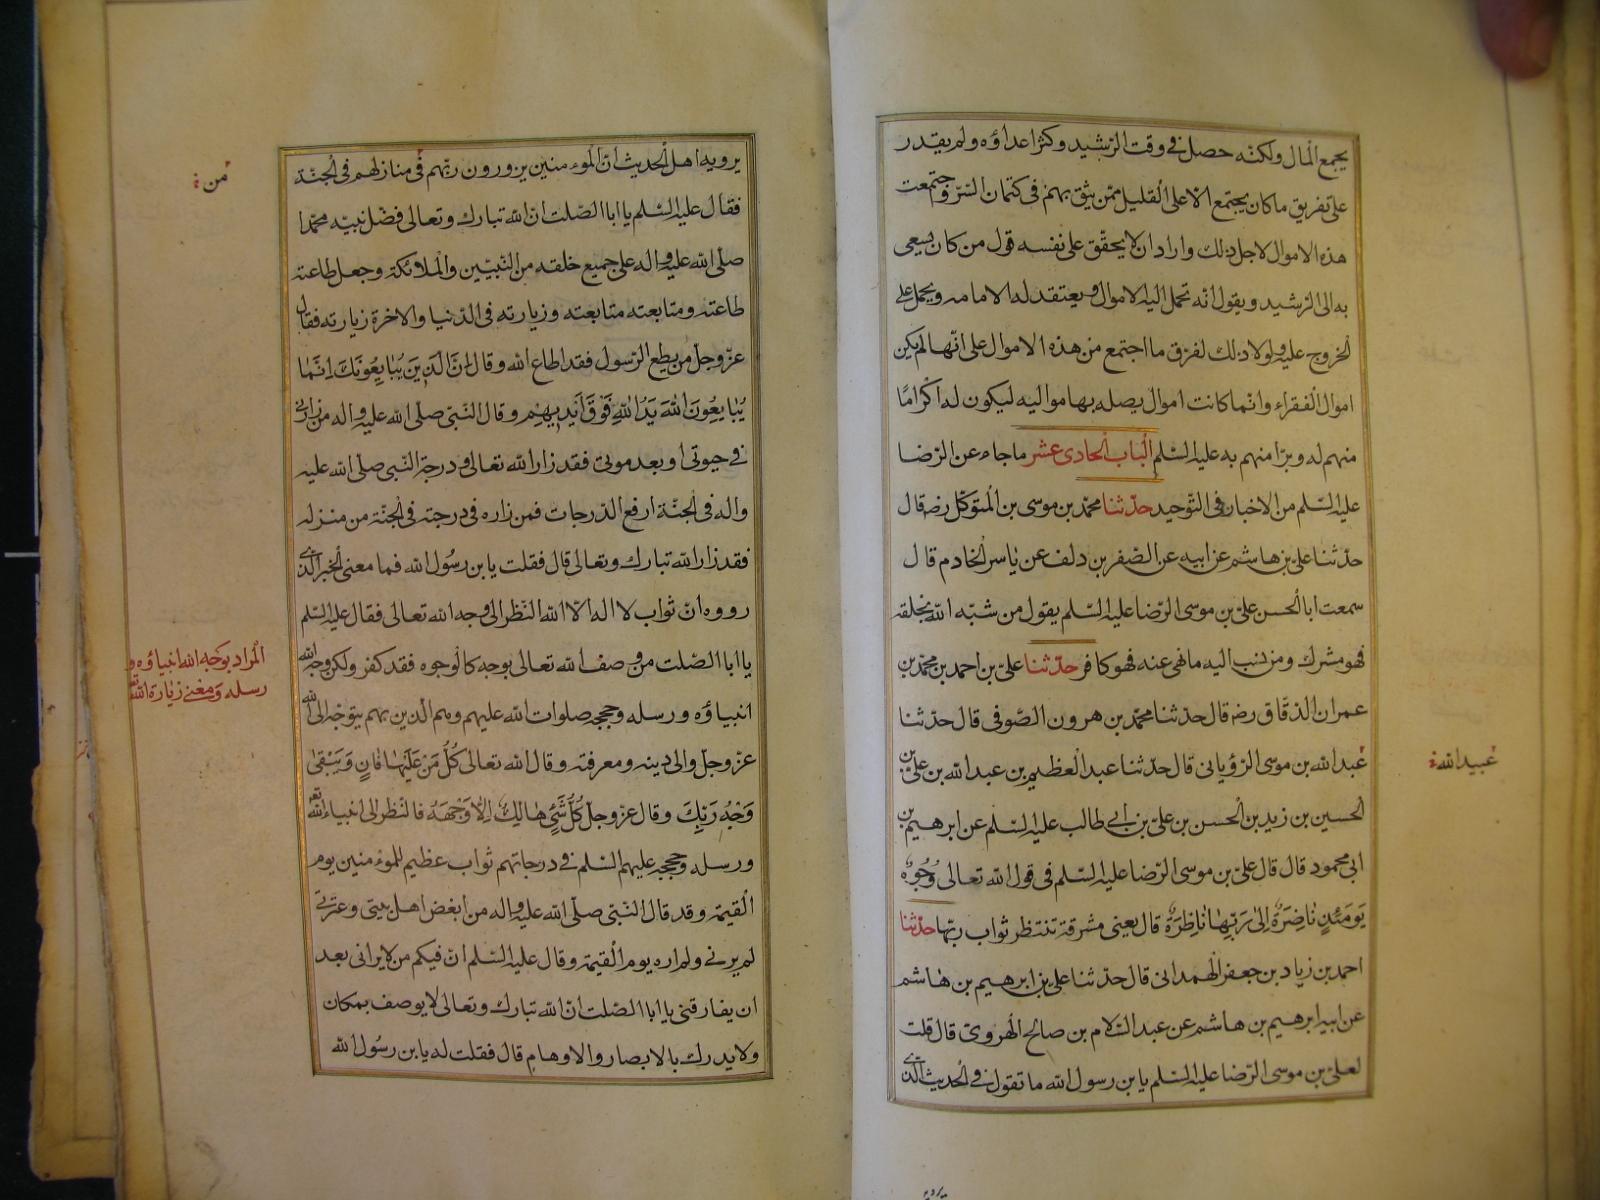 يجمع المال ولكنّه حصل فى وقت الرّشيد وكثر اعداؤه ولم يقدر
على تفريق ما كان يجتمع الا على القليل ممّن يثق بهم فى كتمان السّرّ وجتمعت
هذه الاموال لاجل ذلك واراد ان لا يحقّق على نفسه قول من كان يسعى
به الى الرّشيد ويقول انّه تحمل اليه الاموال ويعتقد له الامامه ويحمل على
الخروج عليه ولولا ذلك لفرّق ما اجتمع من هذه الاموال على انّها لم يكن
اموال الفقراء وانّما كانت اموال يصله بها مواليه ليكون له اكرامًا
منهم له وبرّا منهم به عليه السّلم الباب الحادى عشر ما جاء عن الرّضا
عليه السّلم من الاخبار فى التّوحيد حدّثنا محمّد بن موسى بن المتوكّل رضه قال
حدّثنا علىّ بن هاشم عن ابيه عن الصّفر بن دلف عن ياسر الخادم قال
سمعت ابا الحسن علىّ بن موسى الرّضا عليه السّلم يقول من شبّه اللّه بخلقه
فهو مشرك ومن نسب اليه ما نهى عنه فهو كافر حدّثنا علىّ بن احمد بن محمّد بن
عمران الدّقّاق رضه قال حدّثنا محمّد بن هرون الصّوفى قال حدّثنا
عبد اللّه بن موسى الرّؤيانى قال حدّثنا عبد العظيم بن عبد اللّه بن علىّ بن
الحسين بن زيد بن الحسن بن علىّ بن ابى طالب عليه السّلم عن ابرهيم بن
ابى محمود قال قال علىّ بن موسى الرّضا عليه السّلم فى قول اللّه تعالى وُجُوهٌ
يَومَئِذٍ نَاضِرَةٌ اِلىٰ رَبِّهَا نَاظِرَةٌ قال يعنى مشرقة تنتظر ثواب ربّها حدّثنا
احمد بن زياد بن جعفر الهمدانى قال حدّثنا على بن ابرهيم بن هاشم
عن ابيه ابرهيم بن هاشم عن عبد السّلام بن صالح الهروىّ قال قلت
لعلىّ بن موسى الرّضا عليه السّلم يا بن رسول اللّه ما تقول فى الحديث الّذى
عبيد اللّه
يرويه اهل الحديث انّ الموءمنين يزورون ربّهم فى منازلهم فى الجنّة
فقال عليه السّلم يا ابا الصّلت انّ اللّه تبارك وتعالى فضّل نبيّه محمّدا
صلّى اللّه عليه واله على جميع خلقه من النّبيّين والملائكة وجعل طاعته
طاعته ومتابعته متابعته وزيارته فى الدّنيا والاخرة زيارته فقال
عزّ وجلّ من يطع الرّسول فقد اطاع اللّه وقال اِنَّ الَّذِينَ يُبَايِعُونَكَ اِنَّمَا
يُبَايِعُونَ اللّٰهَ يَدُ اللّٰهِ فَوْقَ اَيْدِيهِمْ وقال النّبىّ صلى اللّه عليه واله من زارنى
فى حيوتى او بعد موتى فقد زار اللّه تعالى ودرجة النّبى صلّى اللّه عليه
واله فى الجنّة ارفع الدّرجات فمن زاره فى درجته فى الجنّة من منزله
فقد زار اللّه تبارك وتعالى قال فقلت يا بن رسُول اللّه فما معنى الخبر الّذى
رووه انّ ثواب لا اله الّا اللّه النّظر الى وجه اللّه تعالى فقال عليه السّلم
يا ابا الصّلت من وصف اللّه تعالى بوجه كالوجوه فقد كفر ولكن وجه اللّه
انبياؤه ورسله وحججه صلوات اللّه عليهم وهم الّذين بهم يتوجّه الى اللّه
عزّ وجلّ والى دينه ومعرفته وقال اللّه تعالى كُلُّ مَنْ عَلَيْهَا فَانٍ وَيَبْقىٰ
وَجْهُ رَبِّكَ وقال عزّ وجلّ كُلُّ شَىْءٍ هَالِكٌ اِلَّا وَجْهَهُ فالنّظر الى انبياء اللّه تعم
ورسله وحججه عليهم السّلم فى درجاتهم ثواب عظيم للموءمنين يوم
القيمة وقد قال النّبىّ صلّى اللّه عليه واله من ابغض اهل بيتى وعترتى
لم يرنى ولم اره يوم القيمة وقال عليه السّلم انّ فيكم من لا يرانى بعد
ان يفارقنى يا ابا الصّلت انّ اللّه تبارك وتعالى لا يوصف بمكان
ولا يدرك بالابصار والاوهام قال فقلت له يا بن رسُول اللّه
من
المراد بوجه اللّه انبياؤه و
رسله ومعنى زيارة اللّه تعم